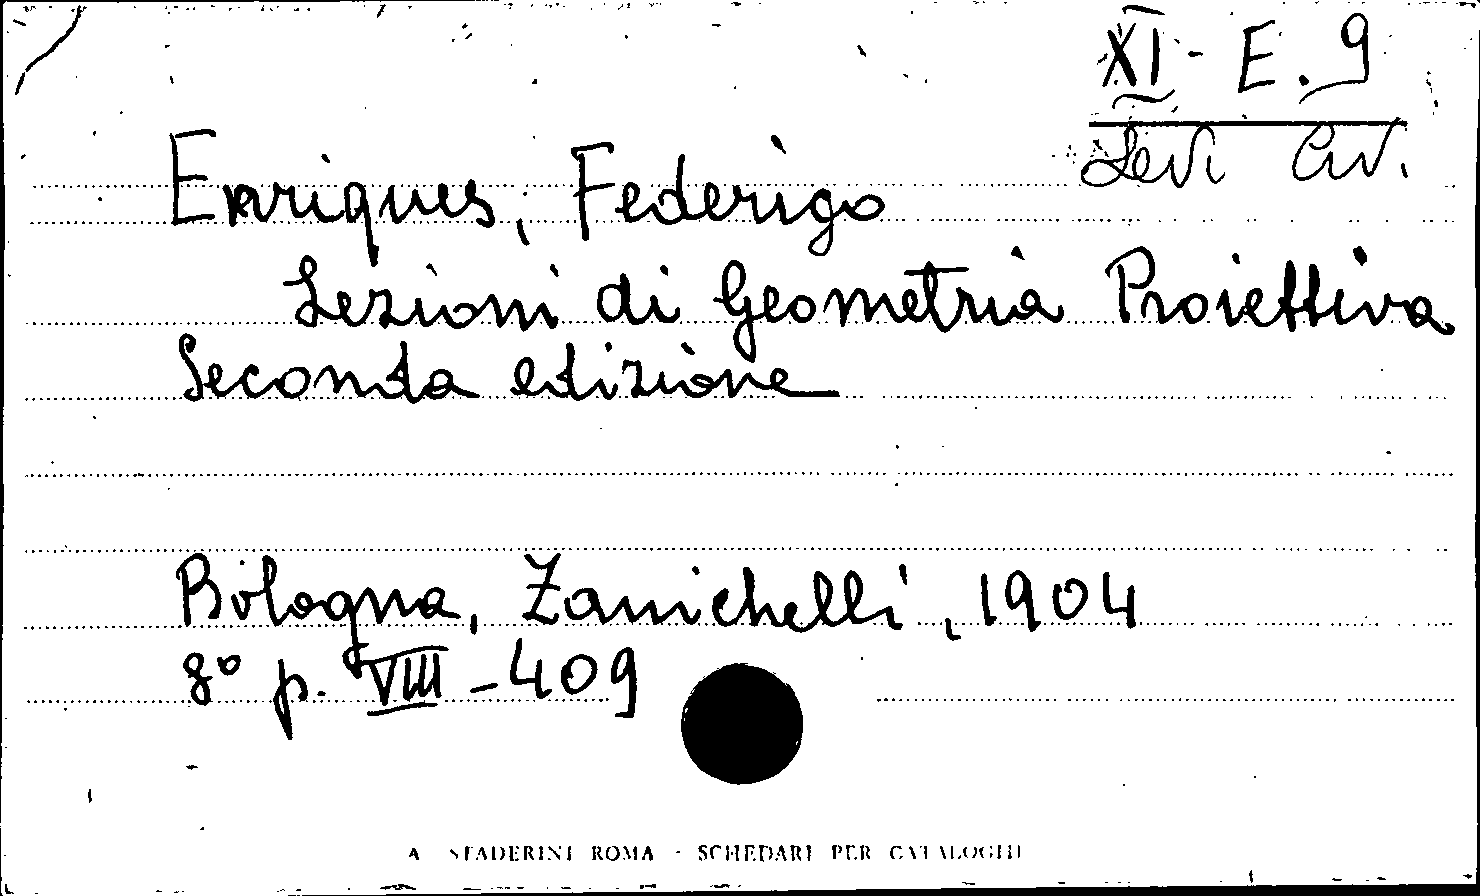 XI - E. 9
Levi Civ.
Enriques, Federigo
Lezioni di Geometria Proiettiva
Seconda edizione
Bologna, Zanichelli, 1904
8° p. VIII - 409
A STADERINI ROMA - SCHEDARI PER CATALOGHI